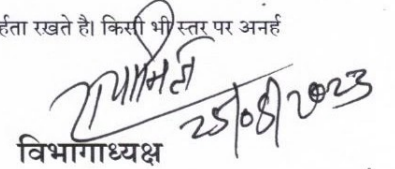 र्हता रखते है। किसी भी स्तर पर अनर्ह
25/08/2023
विभागाध्यक्ष